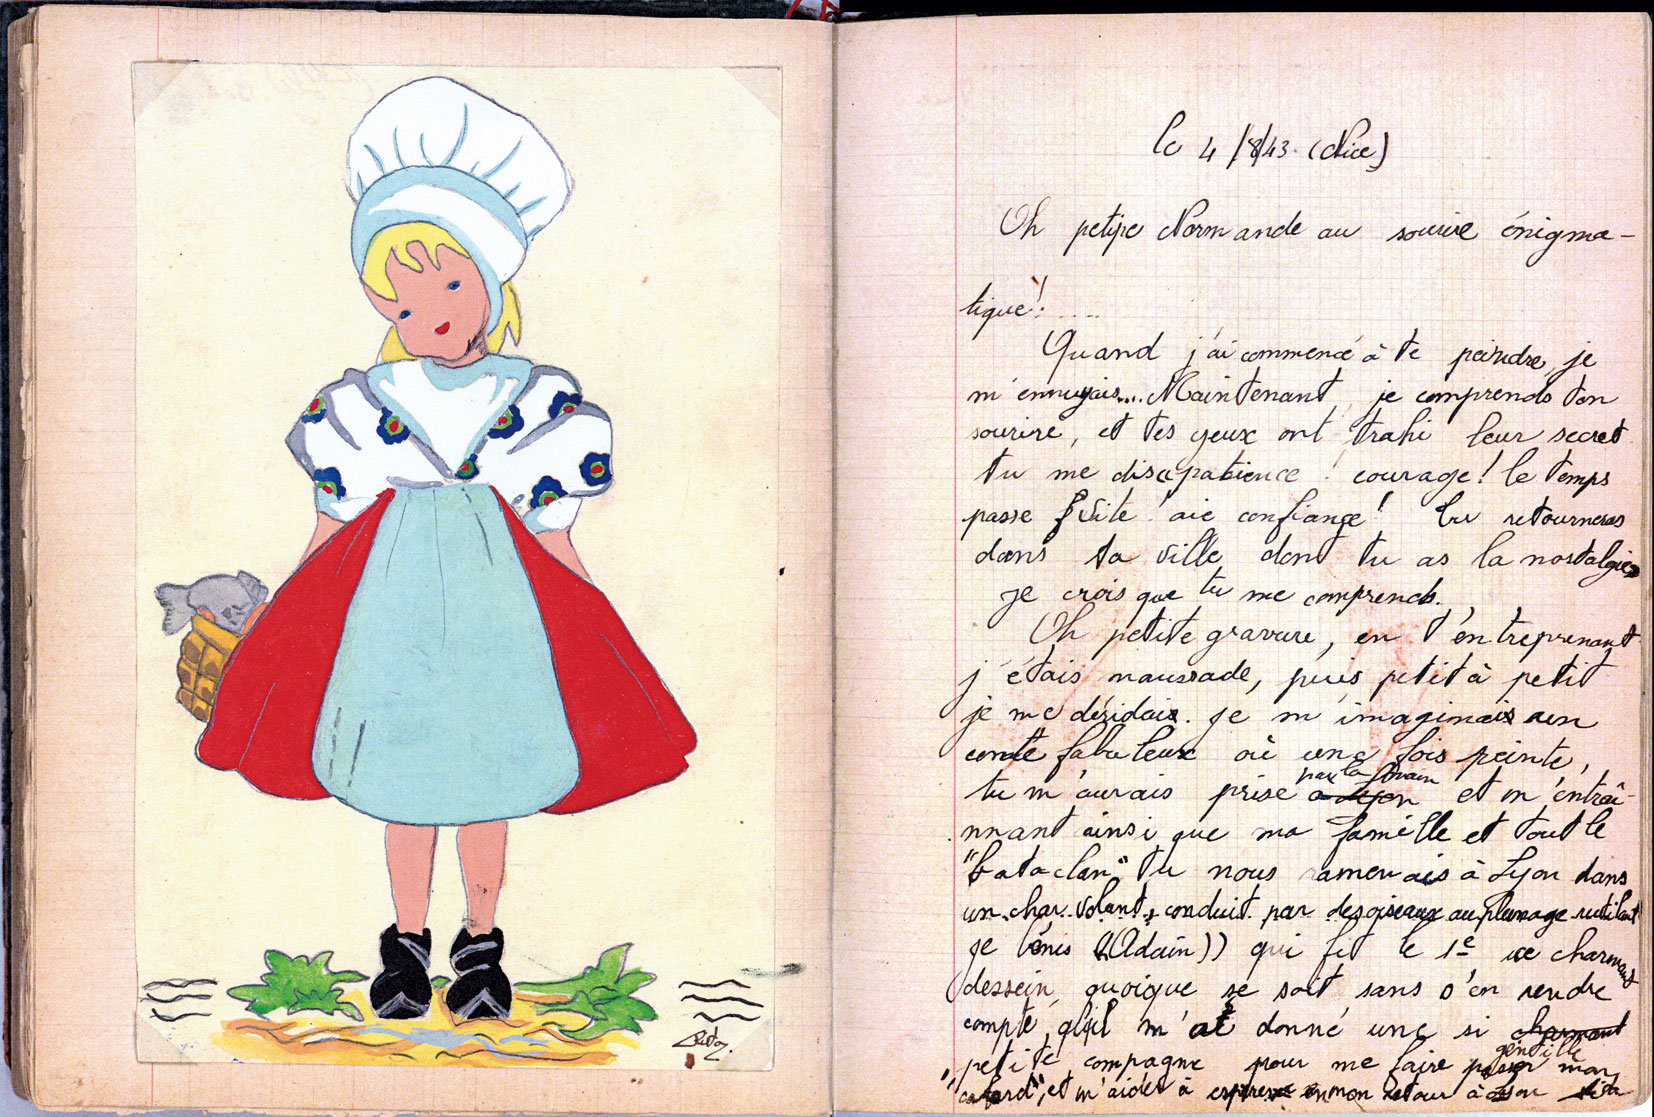 le 4/8/43. (Nice)
Oh petite Normande au sourire énigma-
tique! ....
Quand j'ai commencé à te peindre, je
m'ennuyais.... Maintenant, je comprends ton
sourire, et tes yeux ont trahi leur secret
tu me dis patience ! courage! le temps
passe vite ! aie confiance! tu retourneras
dans ta ville dont tu as la nostalgie
je crois que tu me comprends.
Oh petite gravure, en t'entreprenant
j'étais maussade, puis petit à petit
je me déridais. je m'imaginais un
conte fabuleux où une fois peinte,
tu m'aurais prise par la main et m'entraî-
nnant ainsi que ma famille et tout le
"bataclan" tu nous ramenais à Lyon dans
un char volant, conduit par des oiseaux au plumage rutilant
je bénis ((Adain)) qui fit le 1e ce charmant
dessein, quoique ce soit sans s'en rendre
compte, qu'il m'at donné une si charmant
gentille
petite compagne pour me faire passer mon
"cafard", et m'aider à espérer en mon retour à Lyon